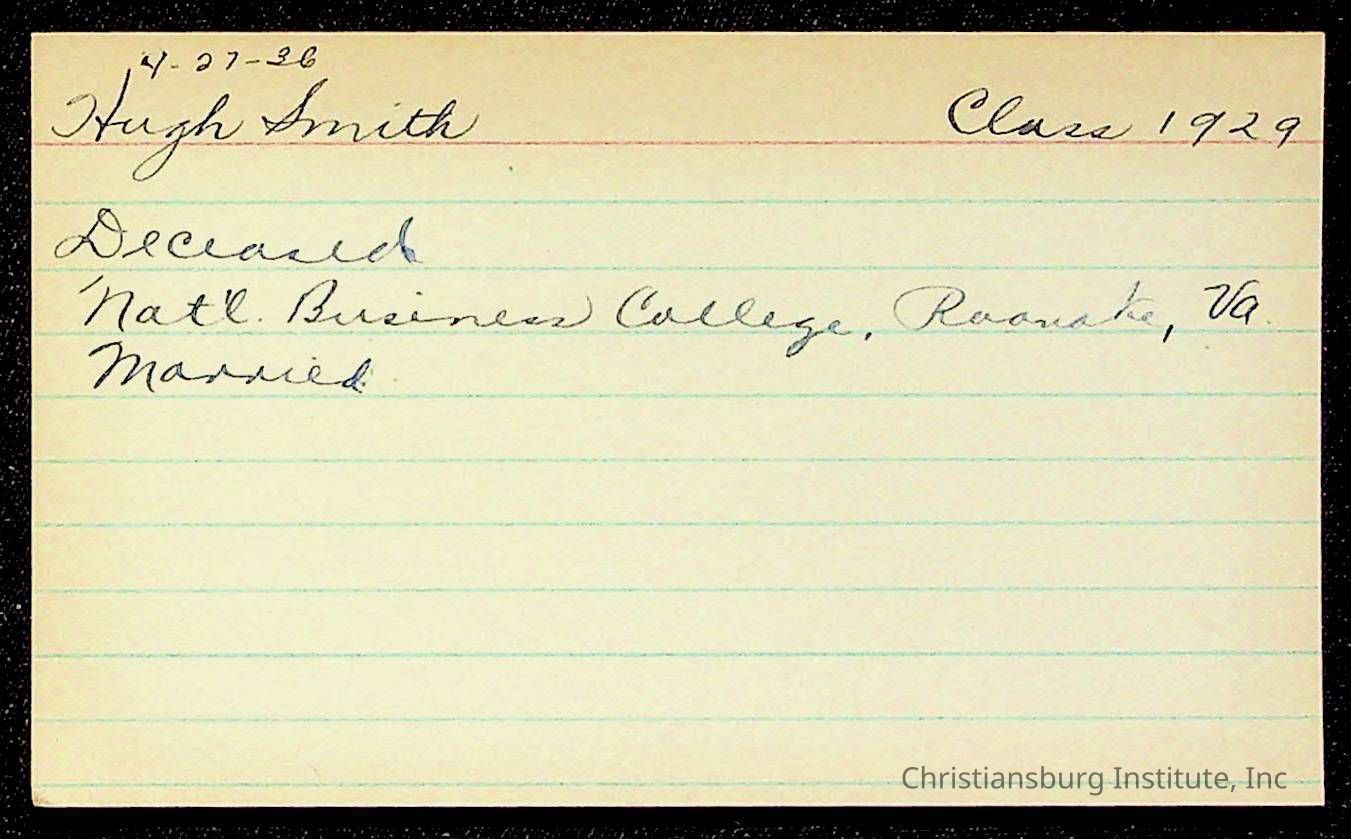 4-27-36
Hugh Smith Class 1929
Deceased
Nat'l. Business College, Roanoke, Va.
Married
Christiansburg Institute, Inc